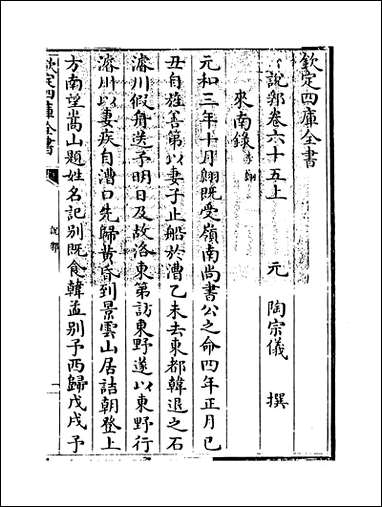 欽定四庫全書
說郛卷六十五上
元 陶宗儀 撰
來南錄 李翺
元和三年十月翺既受嶺南尚書公之命四年正月已
丑自旌善第以妻子止船於漕乙未去東都韓退之石
濬川假舟送予明日及故洛東第訪東野遂以東野行
濬川以妻疾自漕口先歸黃昏到景雲山居詰朝登上
方南望嵩山題姓名記别既食韓孟别予西歸戊戌予
欽定四庫全書
說郛
一